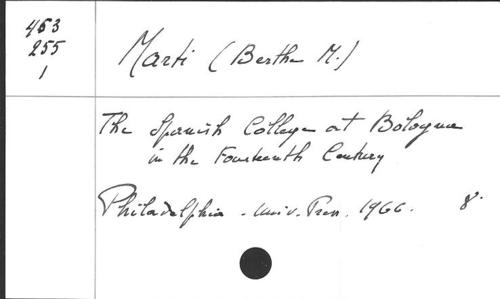 453
255
1
Marti (Berthe M.)
The Spanish College at Bologna
in the Fourteenth Century
Philadelphia - Univ. Press. 1966. 8°